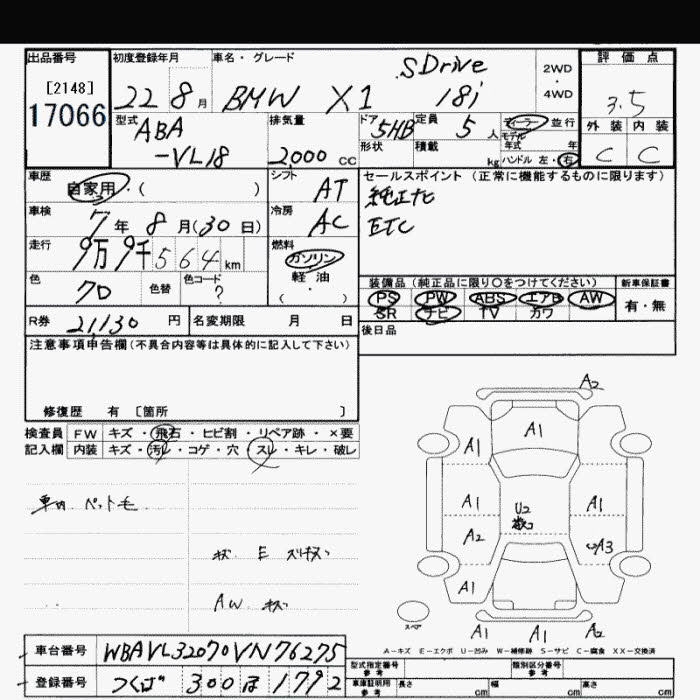 出品番号
[2148]
17066
初度登録年月
22 8 月
車名・グレード
BMW X1 SDrive 18i
2WD
4WD
評価点
3.5
外装 内装
C C
型式
ABA
-VL18
排気量
2,000 cc
ドア 5HB
形状
定員 5 人
積載 kg
ディーラー 並行
モデル
年式 年
ハンドル 左・右
車歴
自家用・( )
シフト AT
セールスポイント (正常に機能するものに限ります)
純正ナビ
ETC
車検
7 年 8 月 (30 日)
冷房 AC
走行
9万 9千 564 km
燃料
ガソリン
軽・油
( )
色
70
色替
色コード
?
装備品 (純正品に限り○をつけてください)
PS PW ABS エアB AW
SR ナビ TV カワ
新車保証書
有・無
R券 21,130 円
名変期限 月 日
後日品
注意事項申告欄 (不具合内容等は具体的に記入して下さい)
修復歴 有 [箇所 ]
検査員 FW キズ・飛石・ヒビ割・リペア跡・×要
記入欄 内装 キズ・汚レ・コゲ・穴・スレ・キレ・破レ
車内 ペット毛
キズ E
AW キズ
A2
A1
A1
A1
U2
A1
A2
A3
A1
A1
A1
A2
スペア
A-キズ E-エクボ U-凹み W-補修跡 S-サビ C-腐食 XX-交換済
車台番号 WBAVL32070VN76275
登録番号 つくば 300 ほ 1792
型式指定番号
参考
類別区分番号
参考
車庫証明用
参考
長さ cm
幅 cm
高さ cm